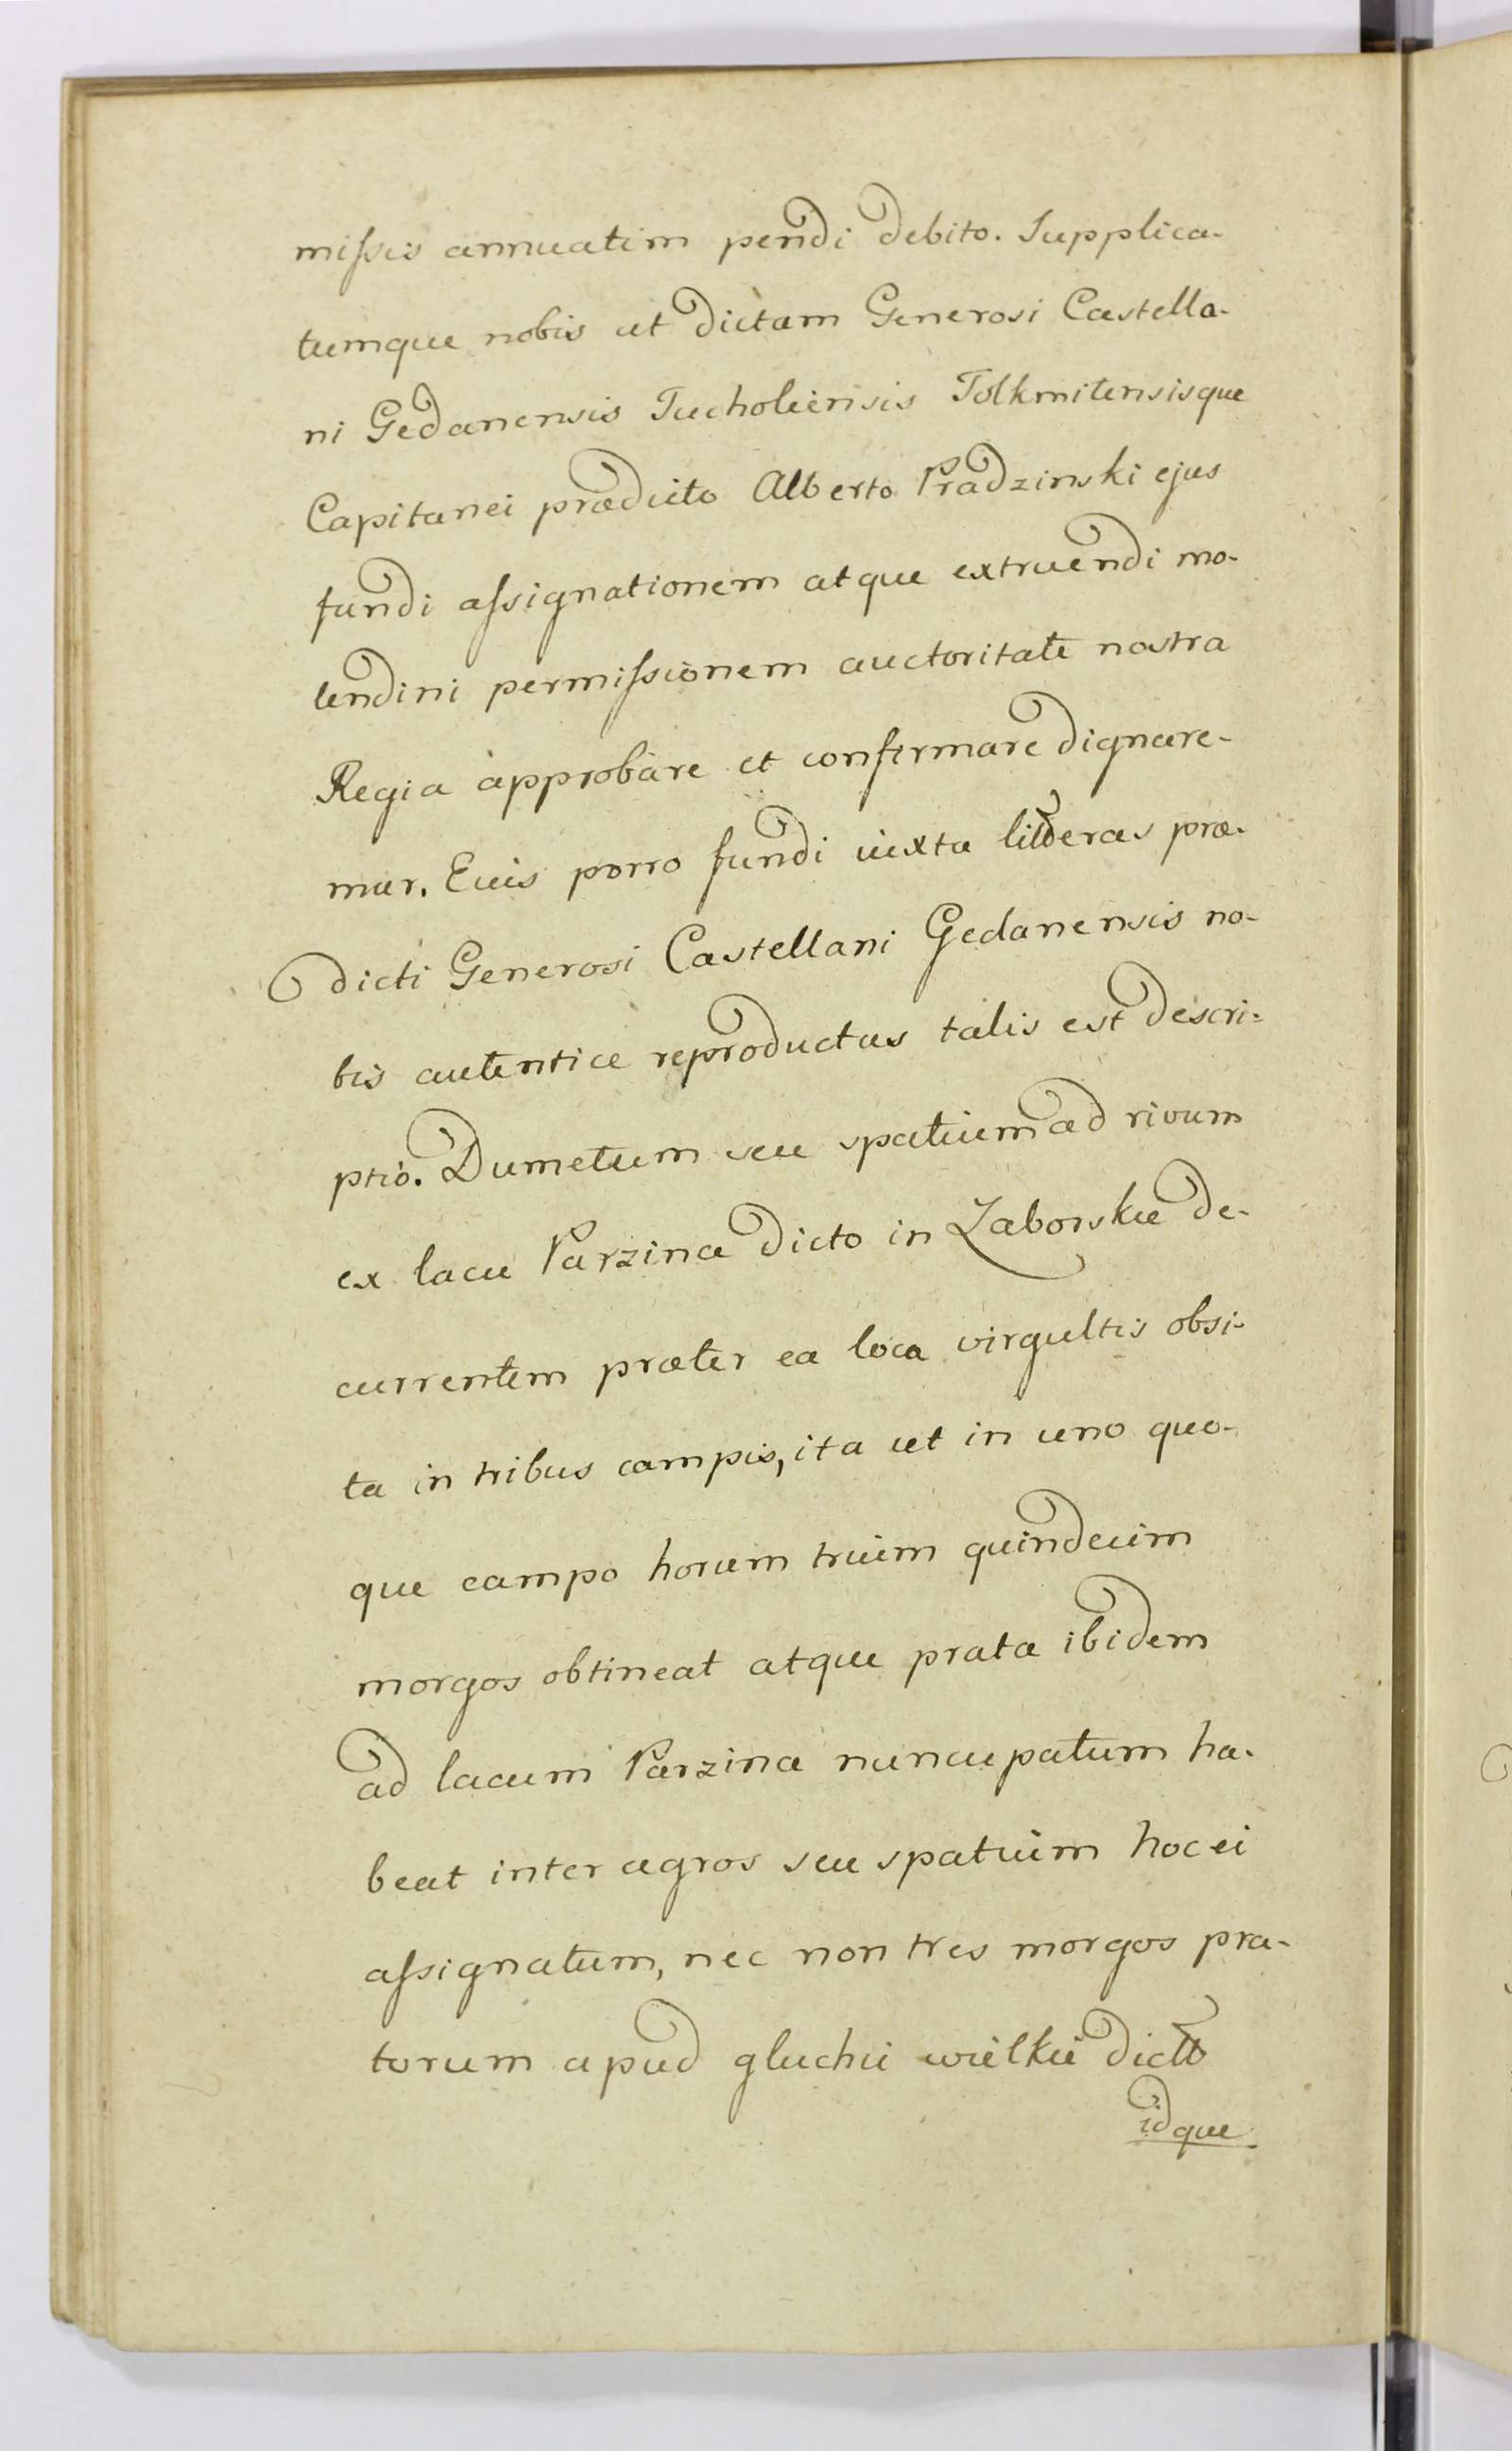 miſsis annuatim pendi debito. Supplica-
tumque nobis ut dictam Generosi Castella-
ni Gedanensis Tucholiensis Tolkmitensisque
Capitanei prædicto Alberto Prądzinski ejus
fundi aſsignationem atque extruendi mo-
lendini permiſsionem auctoritate nostra
Regia approbare et confirmare dignare-
mur. Euis porro fundi iuxta litteras præ-
dicti Generosi Castellani Gedanensis no-
bis autentice reproductas talis est descri-
ptio. Dumetum seu spatium ad rivum
ex lacu Parzina dicto in Zaborskie de-
currentem præter ea loca virgultis obsi-
ta in tribus campis, ita ut in uno quo-
que campo horum trium quindecim
morgos obtineat atque prata ibidem
ad lacum Parzina nuncupatum ha-
beat inter agros seu spatium hoc ei
aſsignatum, nec non tres morgos pra-
torum apud gluchii wielkie dicto
idque